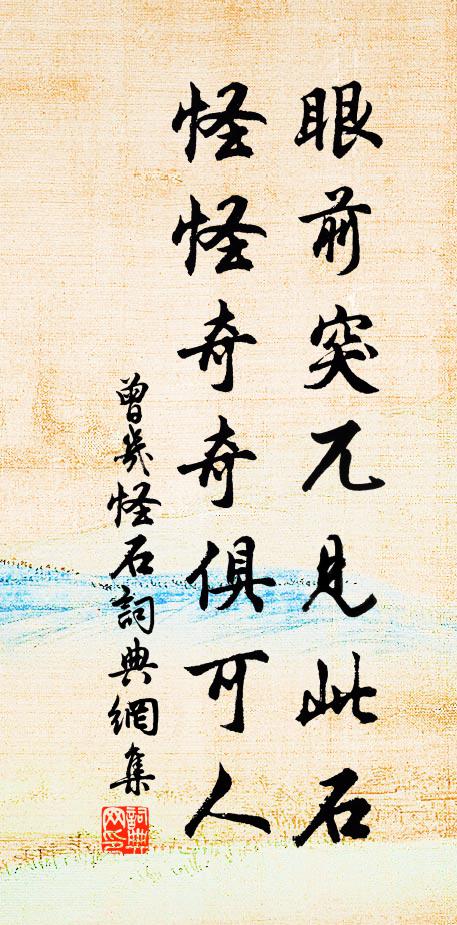 眼前突兀見此石
怪怪奇奇俱可人
曾幾怪石詞典網集
詞典网印